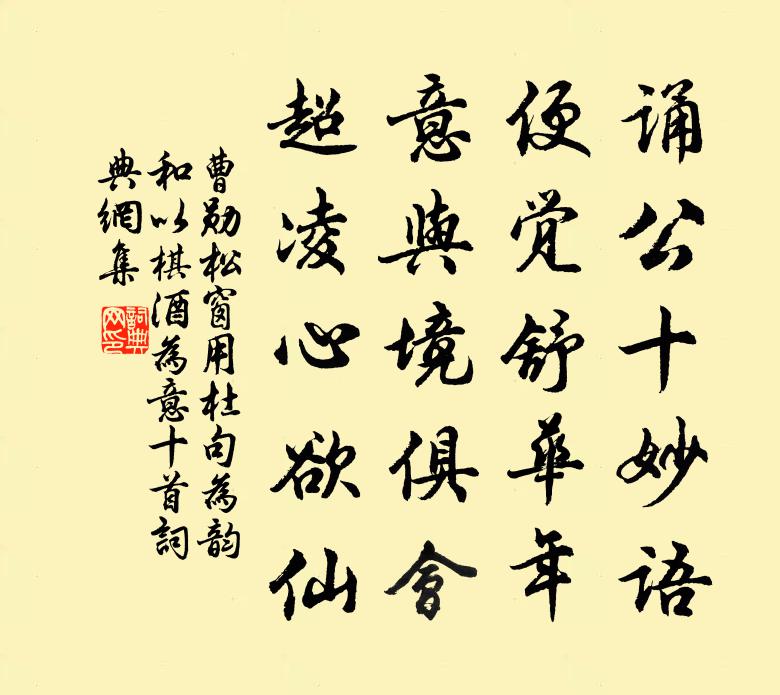 诵公十妙语
便觉舒華年
意與境俱會
超凌心欲仙
曹勋松窗用杜句為韵
和以棋酒為意十首詞
典網集
詞典网印